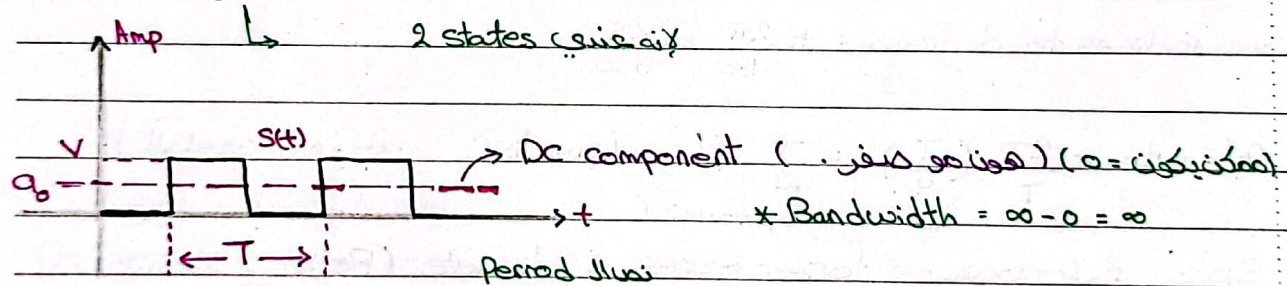 Amp
↳ 2 states لإنه عندي
V
S(t)
a₀
→ DC component (هون مو صفر.) (ممكن يكون = 0)
t
* Bandwidth = ∞ - 0 = ∞
←T→
Period الـ